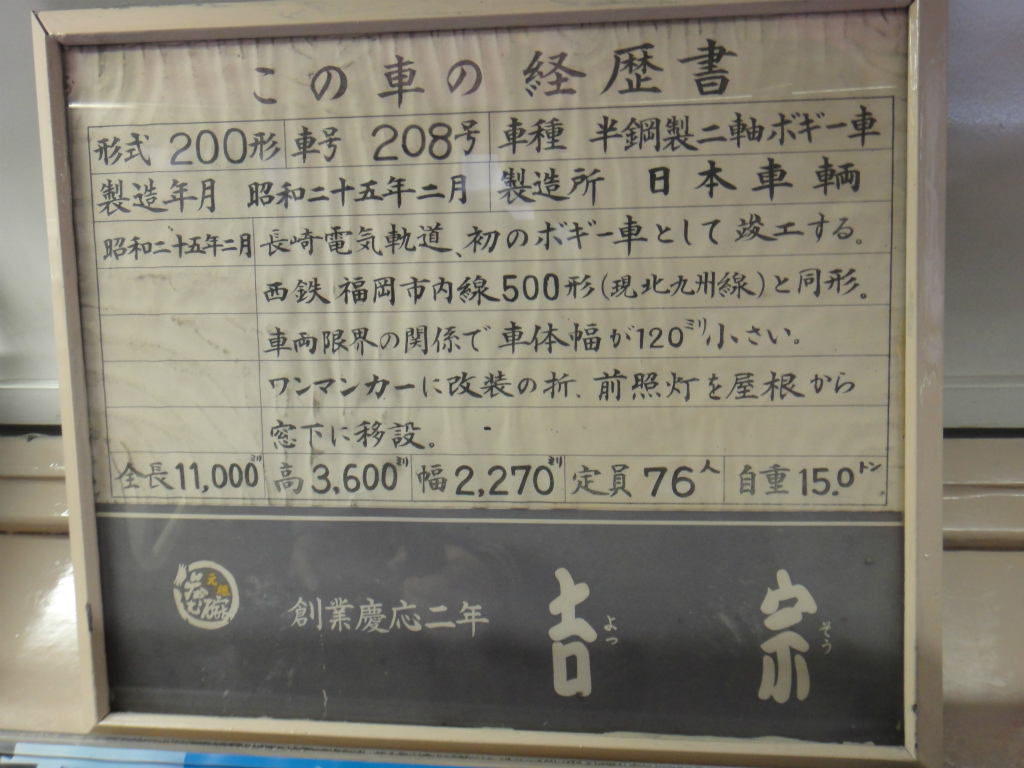 この車の経歴書
形式 200形 車号 208号 車種 半鋼製二軸ボギー車
製造年月 昭和二十五年二月 製造所 日本車輌
昭和二十五年二月 長崎電気軌道、初のボギー車として竣工する。
西鉄福岡市内線500形(現北九州線)と同形。
車両限界の関係で車体幅が120ミリ小さい。
ワンマンカーに改装の折、前照灯を屋根から
窓下に移設。
全長11,000ミリ 高3,600ミリ 幅2,270ミリ 定員76人 自重15.0トン
創業慶応二年 吉宗
よっ そう